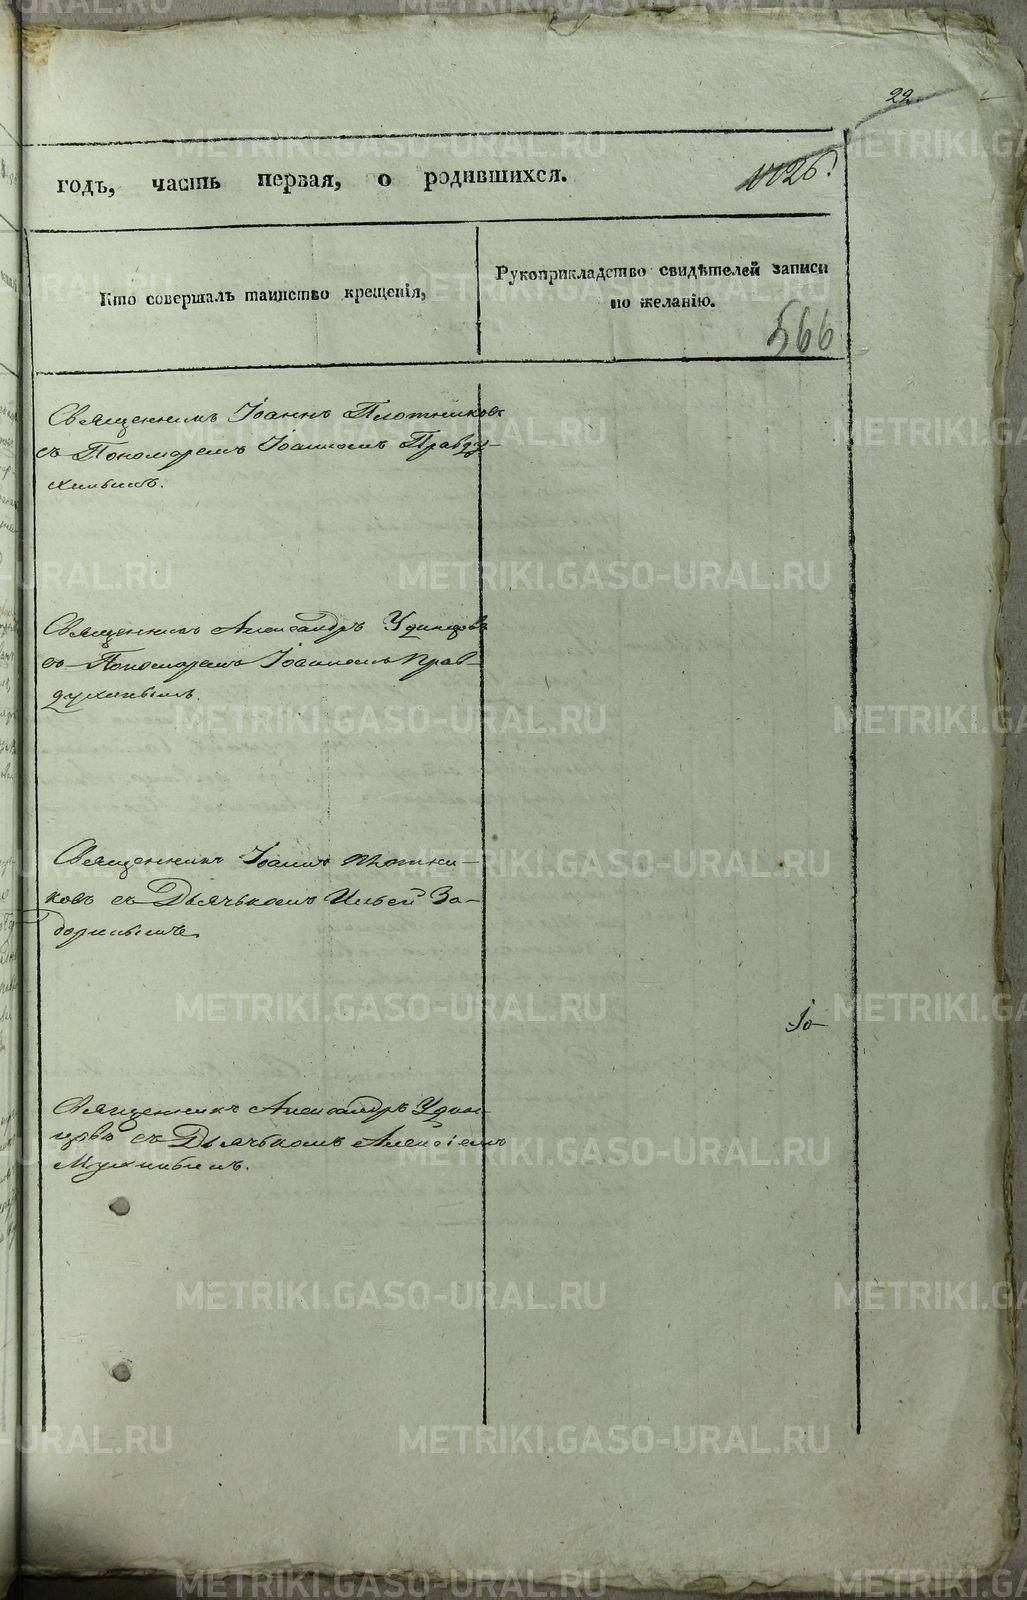 22
годъ, часть первая, о родившихся.
1126.
Кто совершалъ таинство крещенія,
Рукоприкладство свидѣтелей записи
по желанію.
566
Священникъ Іоаннъ Плотниковъ
съ Пономаремъ Іоанномъ Правду-
хинымъ.
Священникъ Александръ Удинцовъ
съ Пономаремъ Іоанномъ Прав-
духинымъ.
Священникъ Іоаннъ Плотни-
ковъ съ Дьячькомъ Ильей За-
доринымъ
Іо-
Священникъ Александръ Удин-
цовъ съ Дьячькомъ Алексіемъ
Мухинымъ.
METRIKI.GASO-URAL.RU